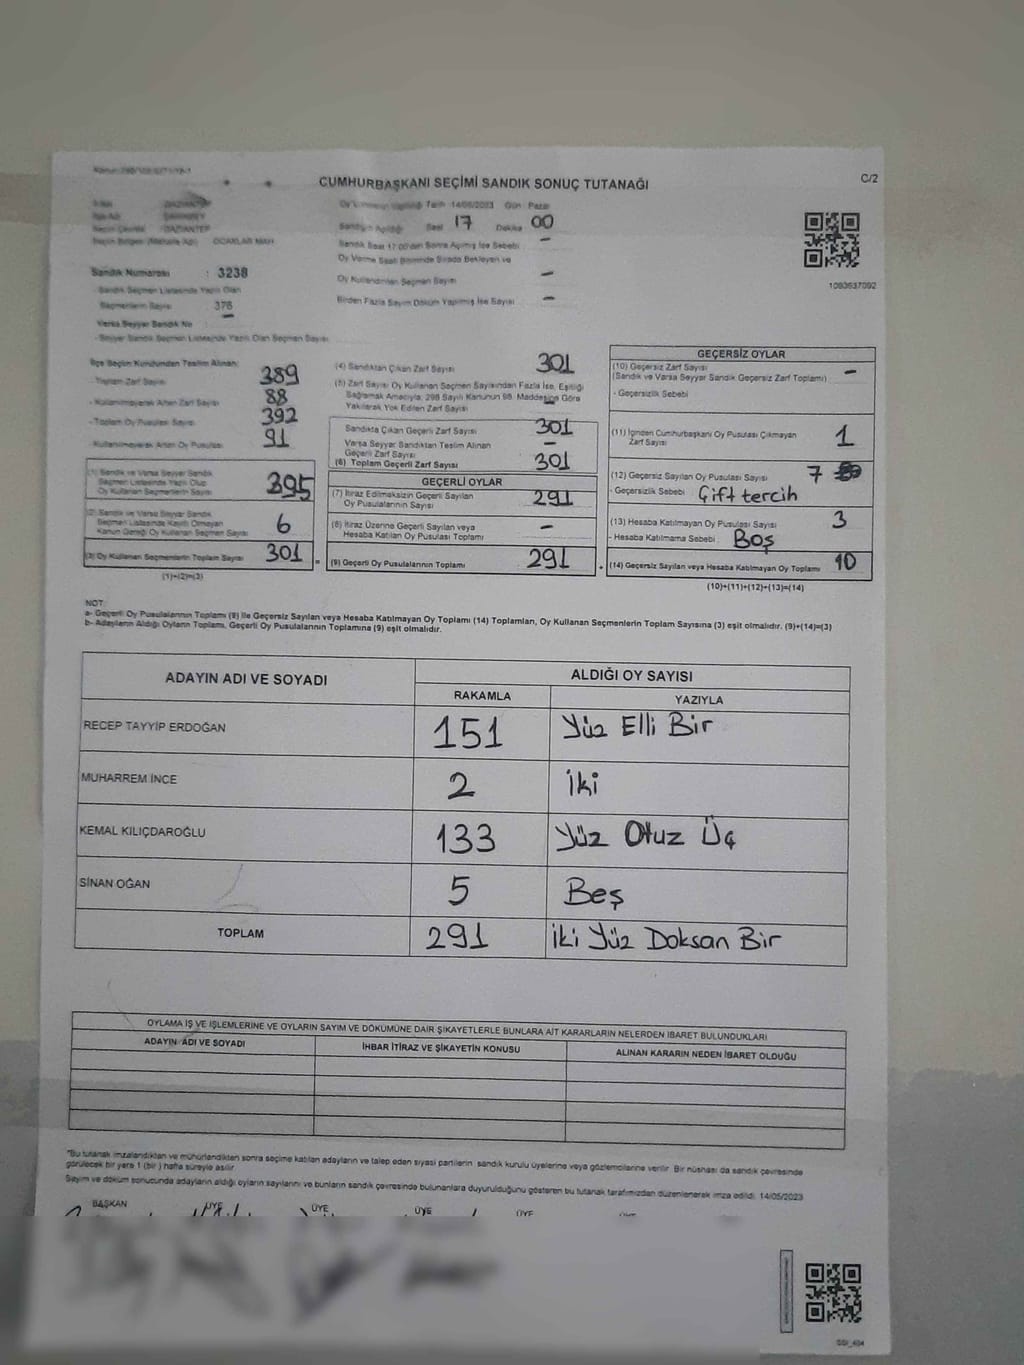 CUMHURBAŞKANI SEÇİMİ SANDIK SONUÇ TUTANAĞI
C/2
GAZİANTEP
OCAKLAR MAH
Tarih 14/05/2023 Gün Pazar
Saat 17 Dakika 00
Sandık Saat 17:00'den Sonra Açılmış İse Sebebi -
Oy Verme Saati Bitiminde Sırada Bekleyen ve
Oy Kullandırılan Seçmen Sayısı -
Birden Fazla Sayım Döküm Yapılmış İse Sayısı -
1093637092
Sandık Numarası : 3238
- Sandık Seçmen Listesinde Yazılı Olan
Seçmenlerin Sayısı 376
Varsa Seyyar Sandık No -
- Seyyar Sandık Seçmen Listesinde Yazılı Olan Seçmen Sayısı
İlçe Seçim Kurulundan Teslim Alınan:
- Toplam Zarf Sayısı 389
- Kullanılmayarak Artan Zarf Sayısı 88
- Toplam Oy Pusulası Sayısı 392
- Kullanılmayarak Artan Oy Pusulası 91
(1) Sandık ve Varsa Seyyar Sandık
Seçmen Listesinde Yazılı Olup
Oy Kullanan Seçmenlerin Sayısı 395
(2) Sandık ve Varsa Seyyar Sandık
Seçmen Listesinde Kayıtlı Olmayan
Kanun Gereği Oy Kullanan Seçmen Sayısı 6
(3) Oy Kullanan Seçmenlerin Toplam Sayısı 301
(1)+(2)=(3)
(4) Sandıktan Çıkan Zarf Sayısı 301
(5) Zarf Sayısı Oy Kullanan Seçmen Sayısından Fazla İse, Eşitliği
Sağlamak Amacıyla, 298 Sayılı Kanunun 98. Maddesine Göre
Yakılarak Yok Edilen Zarf Sayısı -
Sandıkta Çıkan Geçerli Zarf Sayısı 301
Varsa Seyyar Sandıktan Teslim Alınan
Geçerli Zarf Sayısı -
(6) Toplam Geçerli Zarf Sayısı 301
GEÇERLİ OYLAR
(7) İtiraz Edilmeksizin Geçerli Sayılan
Oy Pusulalarının Sayısı 291
(8) İtiraz Üzerine Geçerli Sayılan veya
Hesaba Katılan Oy Pusulası Toplamı -
(9) Geçerli Oy Pusulalarının Toplamı 291
GEÇERSİZ OYLAR
(10) Geçersiz Zarf Sayısı
(Sandık ve Varsa Seyyar Sandık Geçersiz Zarf Toplamı) -
- Geçersizlik Sebebi
(11) İçinden Cumhurbaşkanı Oy Pusulası Çıkmayan
Zarf Sayısı 1
(12) Geçersiz Sayılan Oy Pusulası Sayısı 7
- Geçersizlik Sebebi Çift tercih
(13) Hesaba Katılmayan Oy Pusulası Sayısı 3
- Hesaba Katılmama Sebebi Boş
(14) Geçersiz Sayılan veya Hesaba Katılmayan Oy Toplamı 10
(10)+(11)+(12)+(13)=(14)
NOT:
a- Geçerli Oy Pusulalarının Toplamı (9) ile Geçersiz Sayılan veya Hesaba Katılmayan Oy Toplamı (14) Toplamları, Oy Kullanan Seçmenlerin Toplam Sayısına (3) eşit olmalıdır. (9)+(14)=(3)
b- Adayların Aldığı Oyların Toplamı, Geçerli Oy Pusulalarının Toplamına (9) eşit olmalıdır.
ADAYIN ADI VE SOYADI
ALDIĞI OY SAYISI
RAKAMLA YAZIYLA
RECEP TAYYİP ERDOĞAN 151 Yüz Elli Bir
MUHARREM İNCE 2 İki
KEMAL KILIÇDAROĞLU 133 Yüz Otuz Üç
SİNAN OĞAN 5 Beş
TOPLAM 291 İki Yüz Doksan Bir
OYLAMA İŞ VE İŞLEMLERİNE VE OYLARIN SAYIM VE DÖKÜMÜNE DAİR ŞİKAYETLERLE BUNLARA AİT KARARLARIN NELERDEN İBARET BULUNDUKLARI
ADAYIN ADI VE SOYADI İHBAR İTİRAZ VE ŞİKAYETİN KONUSU ALINAN KARARIN NEDEN İBARET OLDUĞU
*Bu tutanak imzalandıktan ve mühürlendikten sonra seçime katılan adayların ve talep eden siyasi partilerin sandık kurulu üyelerine veya gözlemcilerine verilir. Bir nüshası da sandık çevresinde
görülecek bir yere 1 (bir) hafta süreyle asılır.
Sayım ve döküm sonucunda adayların aldığı oyların sayılarını ve bunların sandık çevresinde bulunanlara duyurulduğunu gösteren bu tutanak tarafımızdan düzenlenerek imza edildi. 14/05/2023
BAŞKAN ÜYE ÜYE ÜYE ÜYE